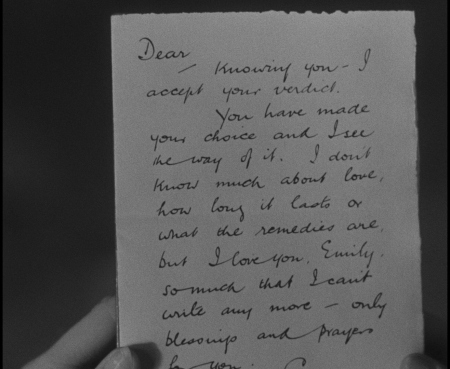 Dear
— Knowing you – I
accept your verdict.
You have made
your choice and I see
the way of it. I don't
know much about love,
how long it lasts or
what the remedies are,
but I love you, Emily,
so much that I can't
write any more – only
blessings and prayers
for you.